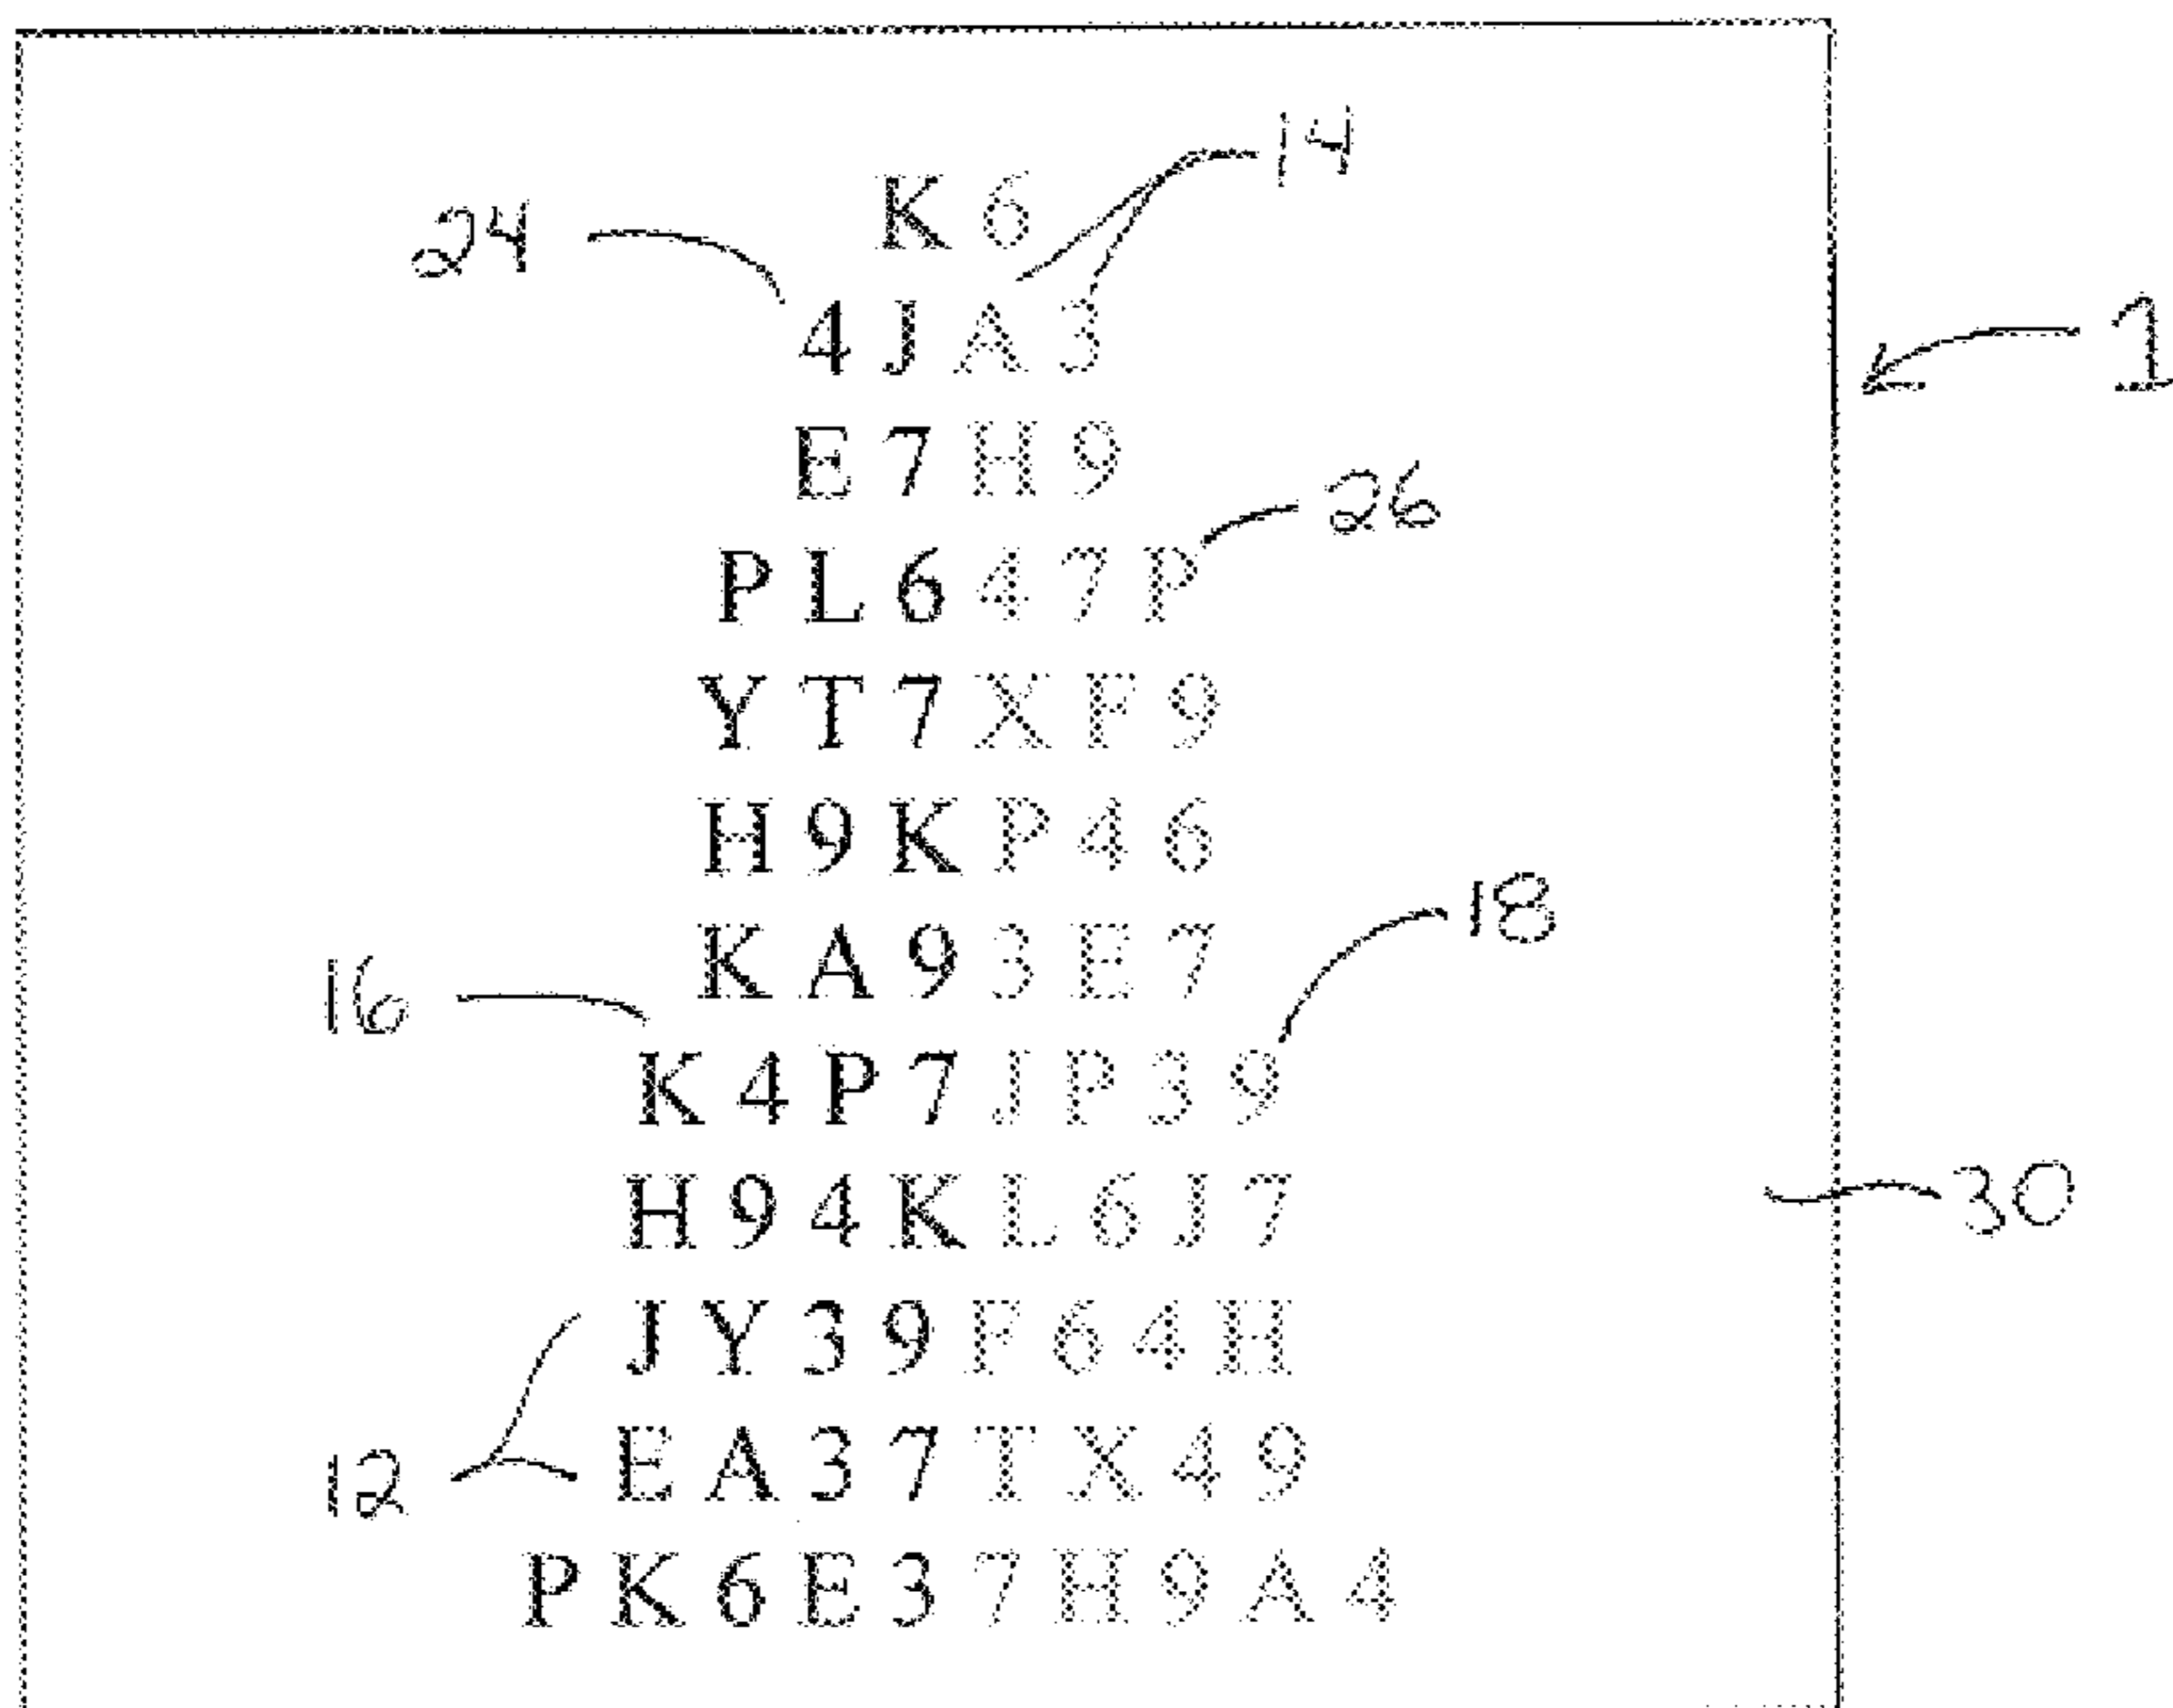 14
K 6
24
4 J A 3
1
E 7 H 9
26
P L 6 4 7 P
Y T 7 X F 9
H 9 K P 4 6
18
K A 9 3 E 7
16
K 4 P 7 J P 3 9
H 9 4 K L 6 J 7
30
J Y 3 9 F 6 4 H
E A 3 7 T X 4 9
12
P K 6 E 3 7 H 9 A 4